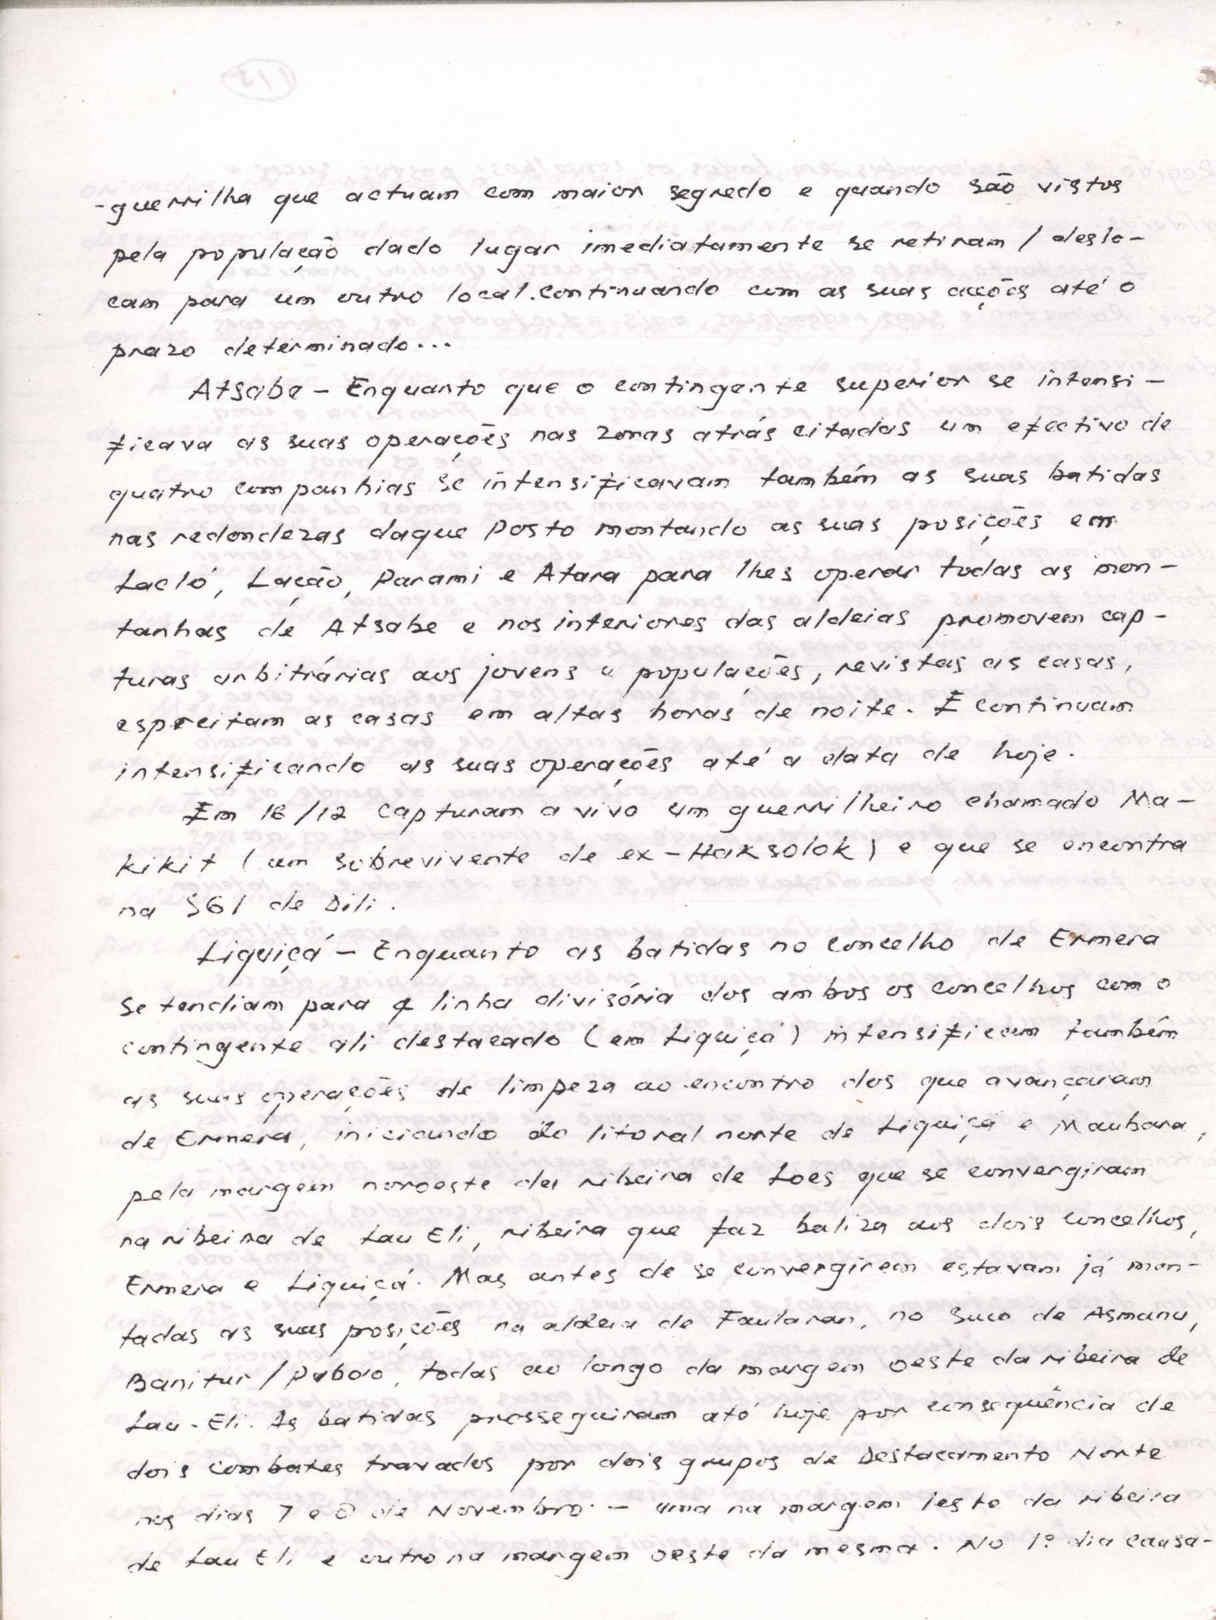 -guerrilha que actuam com maior segredo e quando são vistos
pela população dado lugar imediatamente se retiram / deslo-
cam para um outro local. continuando com as suas acções até o
prazo determinado...
Atsabe - Enquanto que o contingente superior se intensi-
ficava as suas operações nas zonas atrás citadas um efectivo de
quatro companhias se intensificavam também as suas batidas
nas redondezas daque Posto montando as suas posições em
Lacló, Lação, Parami e Atara para lhes operar todas as mon-
tanhas de Atsabe e nos interiores das aldeias promovem cap-
turas arbitrárias aos jovens e populações, revistas as casas,
espreitam as casas em altas horas de noite. E continuam
intensificando as suas operações até a data de hoje.
Em 16/12 capturam a vivo um guerrilheiro chamado Ma-
kikit (um sobrevivente de ex-Haksolok) e que se encontra
na SGI de Dili.
Liquiçá - Enquanto as batidas no concelho de Ermera
se tendiam para a linha divisória dos ambos os concelhos com o
contingente ali destacado (em Liquiçá) intensificam também
as suas operações de limpeza ao encontro dos que avançavam
de Ermera, iniciando do litoral norte de Liquiçá e Maubara,
pela margem noroeste da ribeira de Loes que se convergiram
na ribeira de Lau Eli, ribeira que faz baliza aos dois concelhos,
Ermera e Liquiçá. Mas antes de se convergirem estavam já mon-
tadas as suas posições na aldeia de Faularan, no Suco de Asmanu,
Banitur / Puboo, todas ao longo da margem oeste da ribeira de
Lau-Eli. As batidas prosseguiram até hoje por consequência de
dois combates travados por dois grupos de Destacamento Norte
nos dias 7 e 8 de Novembro. - uma na margem leste da ribeira
de Lau Eli e outro na margem oeste da mesma. No 1º dia causa-